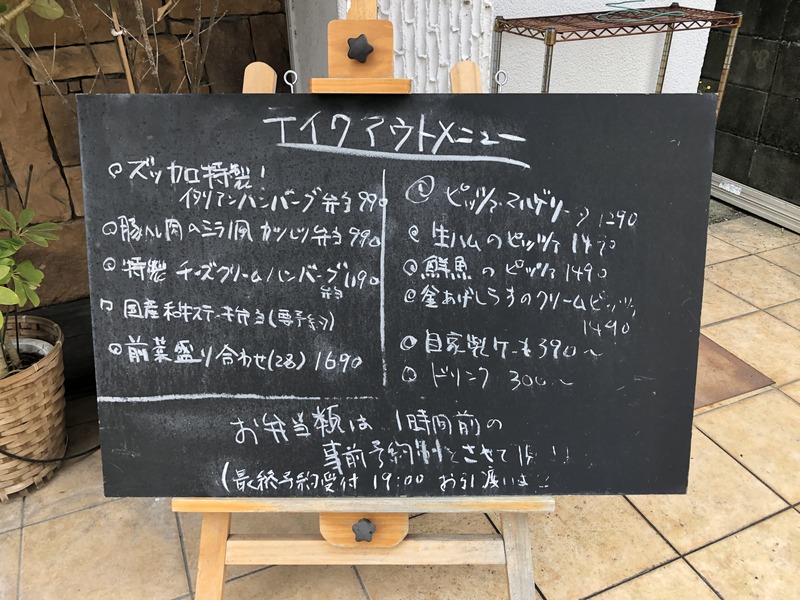 テイクアウトメニュー
ズッカロ特製!
イタリアンハンバーグ弁当 990
豚ヘレ肉のミラノ風カツレツ弁当 990
特製チーズクリームハンバーグ 1190
弁当
国産和牛ステーキ弁当(要予約)
前菜盛り合わせ(2名) 1690
ピッツァマルゲリータ 1290
生ハムのピッツァ 1490
鮮魚のピッツァ 1490
釜あげしらすのクリームピッツァ
1490
自家製ケーキ 390〜
ドリンク 300〜
お弁当類は 1時間前の
事前予約制とさせて
(最終予約受付 19:00 お引渡しは